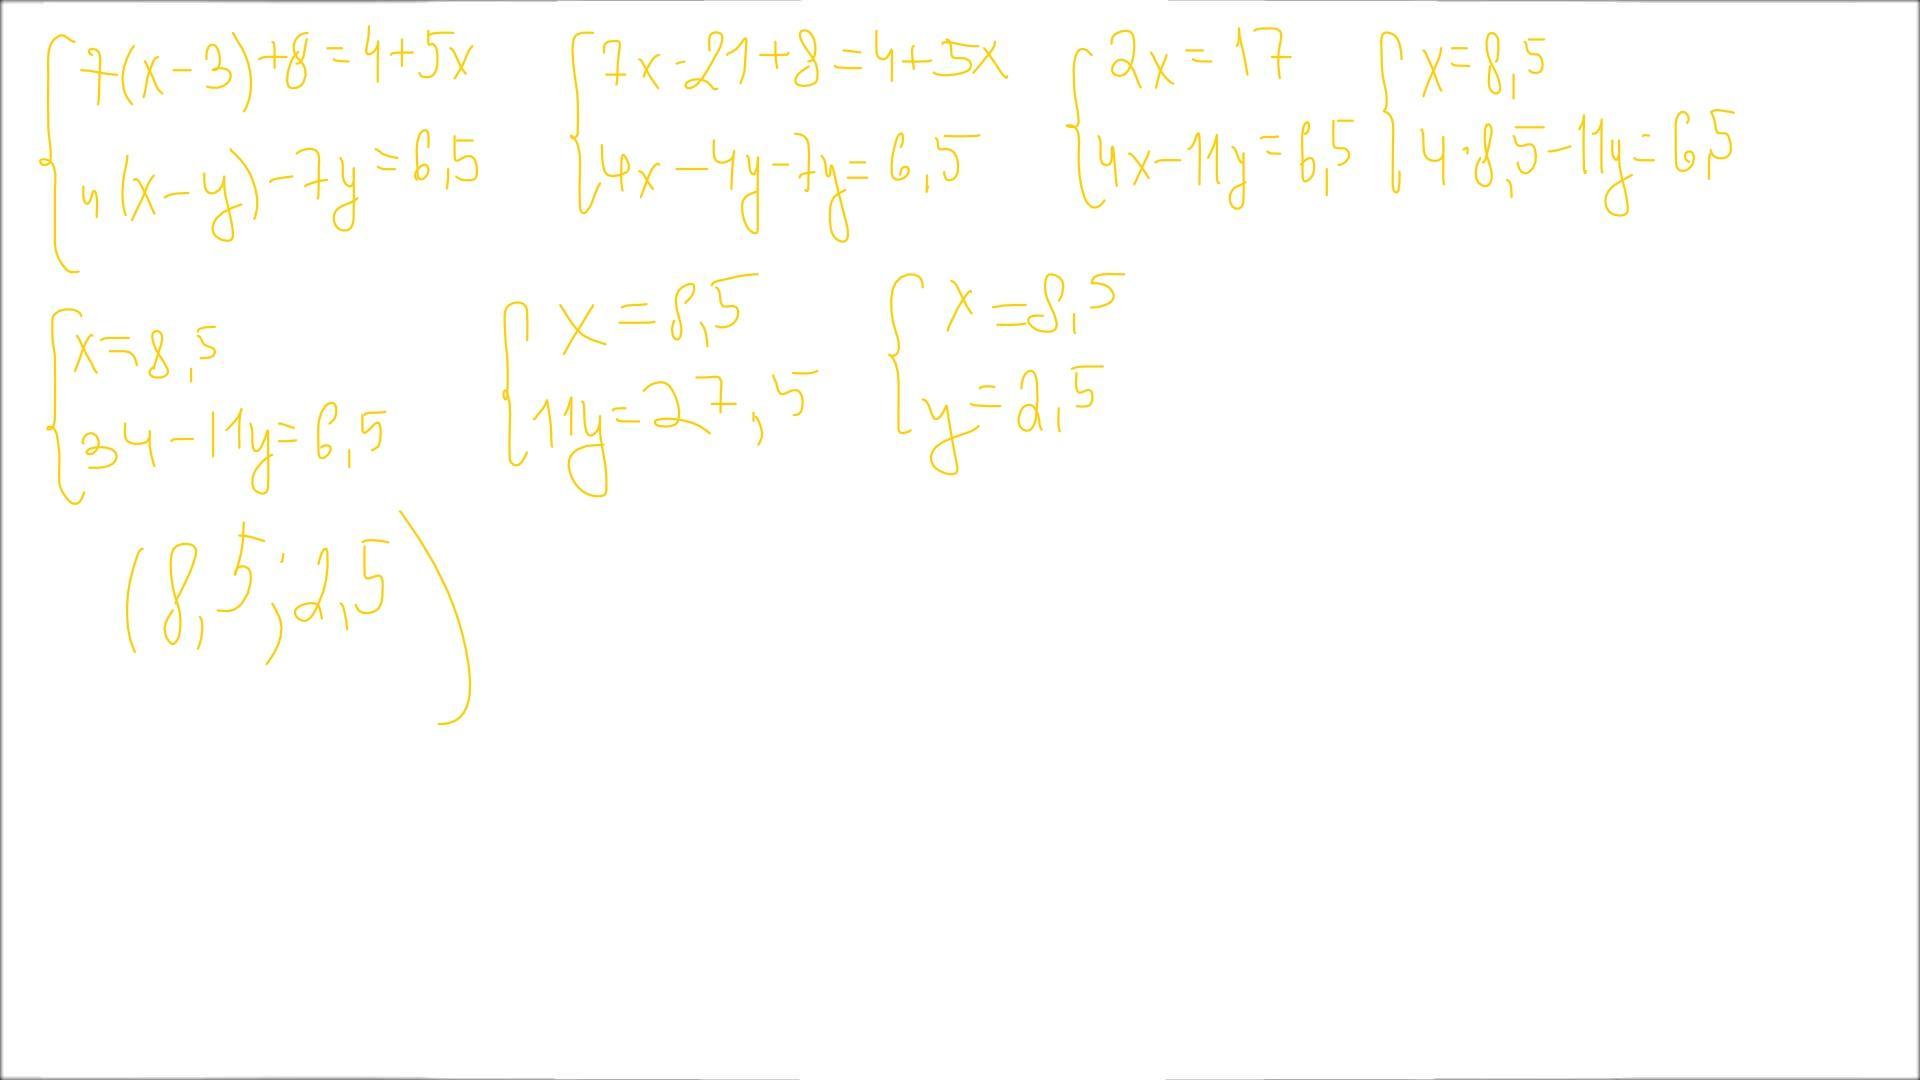 7(x-3)+8=4+5x
4(x-y)-7y=6,5
7x-21+8=4+5x
4x-4y-7y=6,5
2x=17
4x-11y=6,5
x=8,5
4·8,5-11y=6,5
x=8,5
34-11y=6,5
x=8,5
11y=27,5
x=8,5
y=2,5
(8,5;2,5)